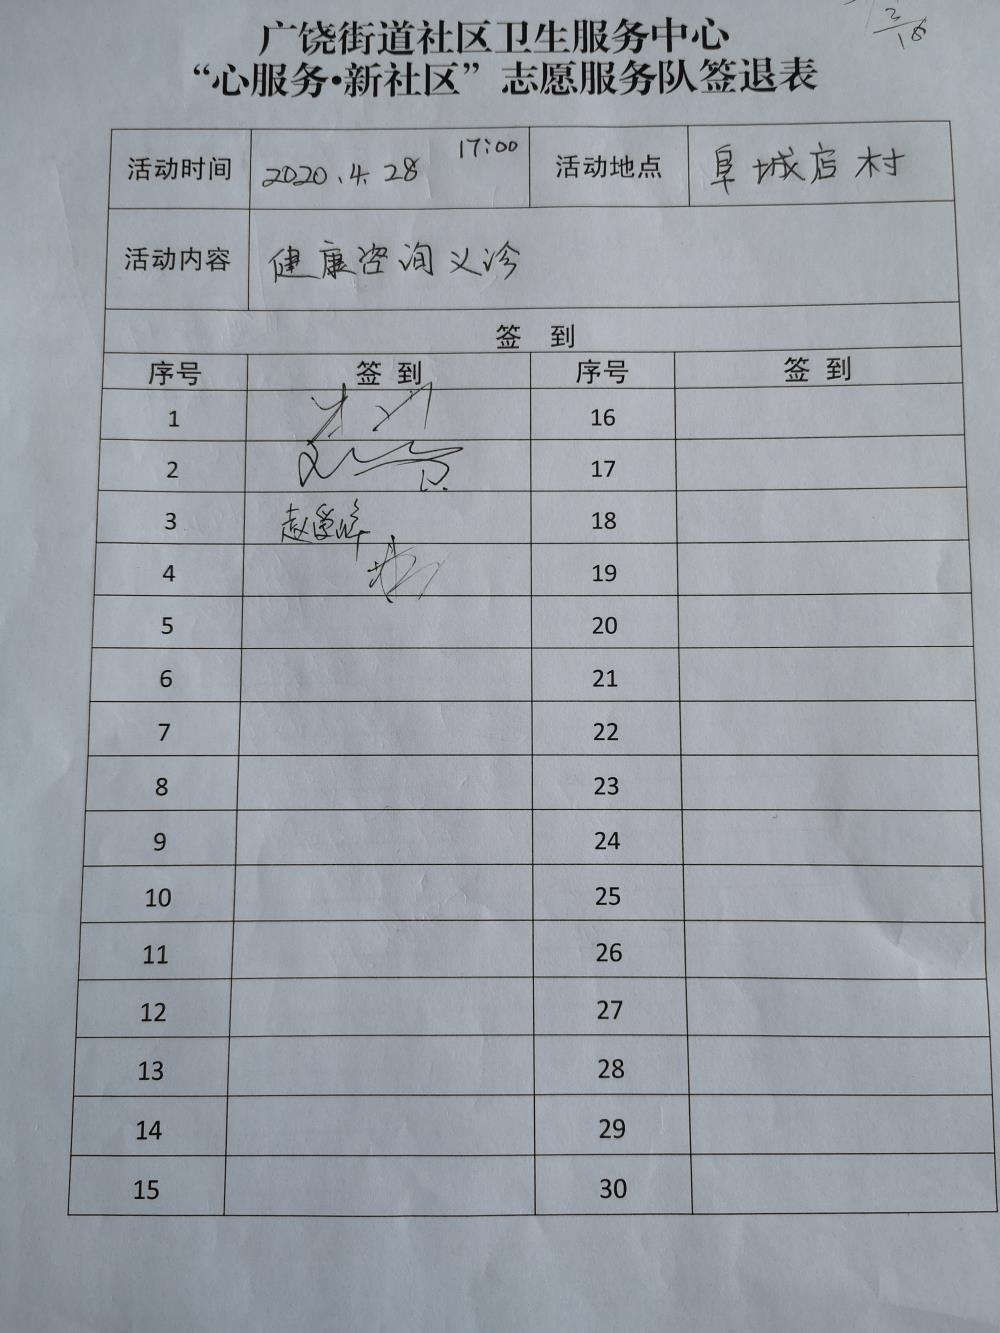 广饶街道社区卫生服务中心
“心服务·新社区”志愿服务队签退表
活动时间 2020.4.28 17:00 活动地点 阜城店村
活动内容 健康咨询义诊
签 到
序号 签到 序号 签到
1 16
2 17
3 18
4 19
5 20
6 21
7 22
8 23
9 24
10 25
11 26
12 27
13 28
14 29
15 30